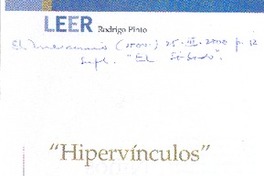 LEER Rodrigo Pinto
El Mercurio (Stgo.) 25-III-2000 p. 12
Supl. "El Sábado".
"Hipervínculos"